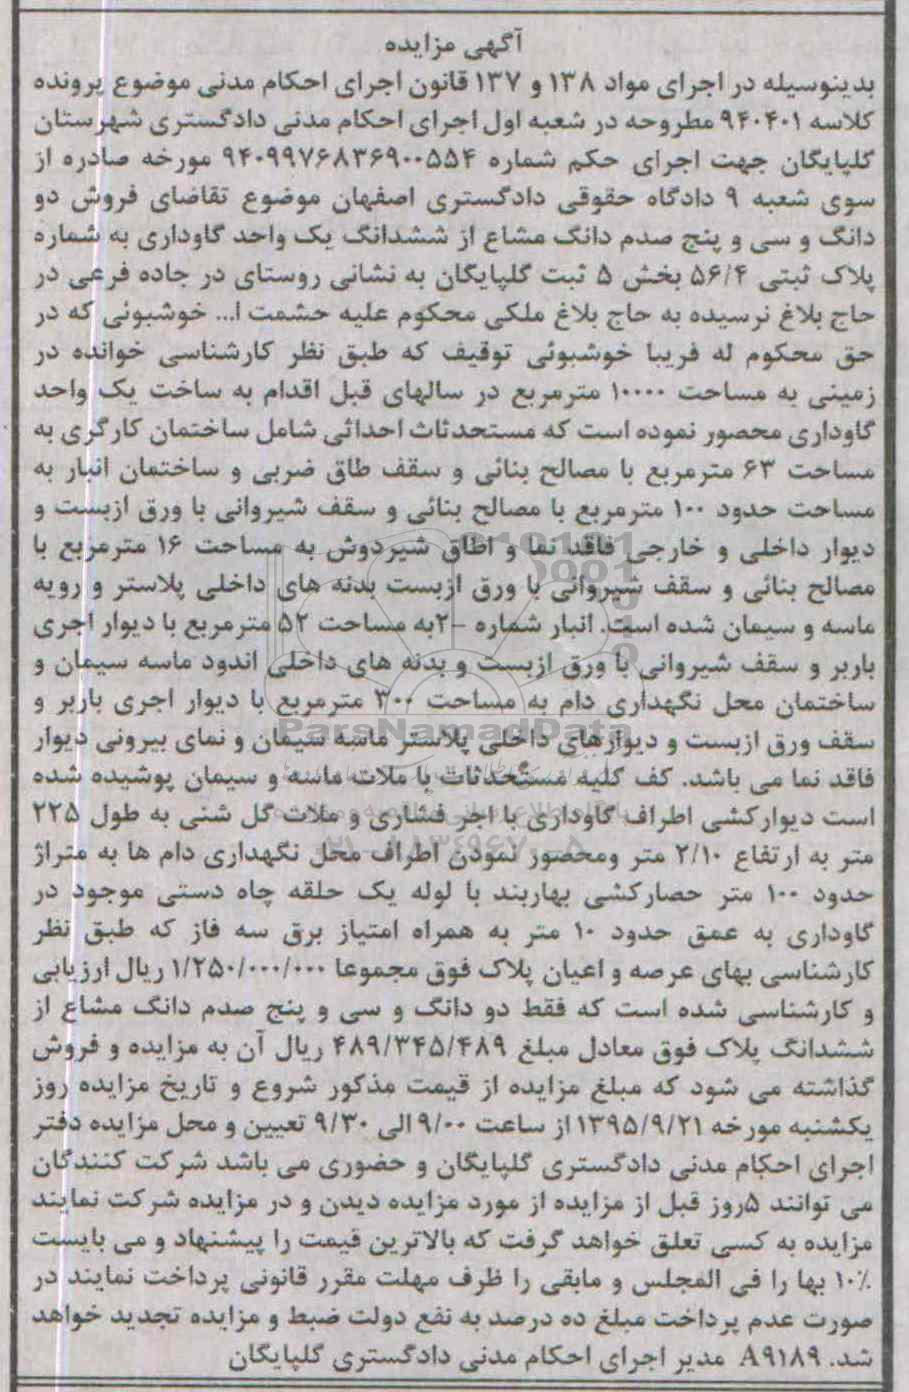 آگهی مزایده
بدینوسیله در اجرای مواد ۱۳۸ و ۱۳۷ قانون اجرای احکام مدنی موضوع پرونده
کلاسه ۹۴۰۴۰۱ مطروحه در شعبه اول اجرای احکام مدنی دادگستری شهرستان
گلپایگان جهت اجرای حکم شماره ۹۴۰۹۹۷۶۸۳۶۹۰۰۵۵۴ مورخه صادره از
سوی شعبه ۹ دادگاه حقوقی دادگستری اصفهان موضوع تقاضای فروش دو
دانگ و سی و پنج صدم دانگ مشاع از ششدانگ یک واحد گاوداری به شماره
پلاک ثبتی ۵۶/۴ بخش ۵ ثبت گلپایگان به نشانی روستای در جاده فرعی در
حاج بلاغ نرسیده به حاج بلاغ ملکی محکوم علیه حشمت ا... خوشبوئی که در
حق محکوم له فریبا خوشبوئی توقیف که طبق نظر کارشناسی خوانده در
زمینی به مساحت ۱۰۰۰۰ مترمربع در سالهای قبل اقدام به ساخت یک واحد
گاوداری محصور نموده است که مستحدثات احداثی شامل ساختمان کارگری به
مساحت ۶۳ مترمربع با مصالح بنائی و سقف طاق ضربی و ساختمان انبار به
مساحت حدود ۱۰۰ مترمربع با مصالح بنائی و سقف شیروانی با ورق ازبست و
دیوار داخلی و خارجی فاقد نما و اطاق شیردوش به مساحت ۱۶ مترمربع با
مصالح بنائی و سقف شیروانی با ورق ازبست بدنه های داخلی پلاستر و رویه
ماسه و سیمان شده است. انبار شماره -۲به مساحت ۵۲ مترمربع با دیوار آجری
باربر و سقف شیروانی با ورق ازبست و بدنه های داخلی اندود ماسه سیمان و
ساختمان محل نگهداری دام به مساحت ۳۰۰ مترمربع با دیوار اجری باربر و
ParsNamadData
سقف ورق ازبست و دیوارهای داخلی پلاستر ماسه سیمان و نمای بیرونی دیوار
فاقد نما می باشد. کف کلیه مستحدثات با ملات ماسه و سیمان پوشیده شده
است دیوارکشی اطراف گاوداری با اجر فشاری و ملات گل شنی به طول ۲۲۵
متر به ارتفاع ۲/۱۰ متر ومحصور نمودن اطراف محل نگهداری دام ها به متراژ
حدود ۱۰۰ متر حصارکشی بهاربند با لوله یک حلقه چاه دستی موجود در
گاوداری به عمق حدود ۱۰ متر به همراه امتیاز برق سه فاز که طبق نظر
کارشناسی بهای عرصه و اعیان پلاک فوق مجموعا ۱/۲۵۰/۰۰۰/۰۰۰ ریال ارزیابی
و کارشناسی شده است که فقط دو دانگ و سی و پنج صدم دانگ مشاع از
ششدانگ پلاک فوق معادل مبلغ ۴۸۹/۳۴۵/۴۸۹ ریال آن به مزایده و فروش
گذاشته می شود که مبلغ مزایده از قیمت مذکور شروع و تاریخ مزایده روز
یکشنبه مورخه ۱۳۹۵/۹/۲۱ از ساعت ۹/۰۰ الی ۹/۳۰ تعیین و محل مزایده دفتر
اجرای احکام مدنی دادگستری گلپایگان و حضوری می باشد شرکت کنندگان
می توانند ۵روز قبل از مزایده از مورد مزایده دیدن و در مزایده شرکت نمایند
مزایده به کسی تعلق خواهد گرفت که بالاترین قیمت را پیشنهاد و می بایست
۱۰٪ بها را فی المجلس و مابقی را ظرف مهلت مقرر قانونی پرداخت نمایند در
صورت عدم پرداخت مبلغ ده درصد به نفع دولت ضبط و مزایده تجدید خواهد
شد. A۹۱۸۹ مدیر اجرای احکام مدنی دادگستری گلپایگان